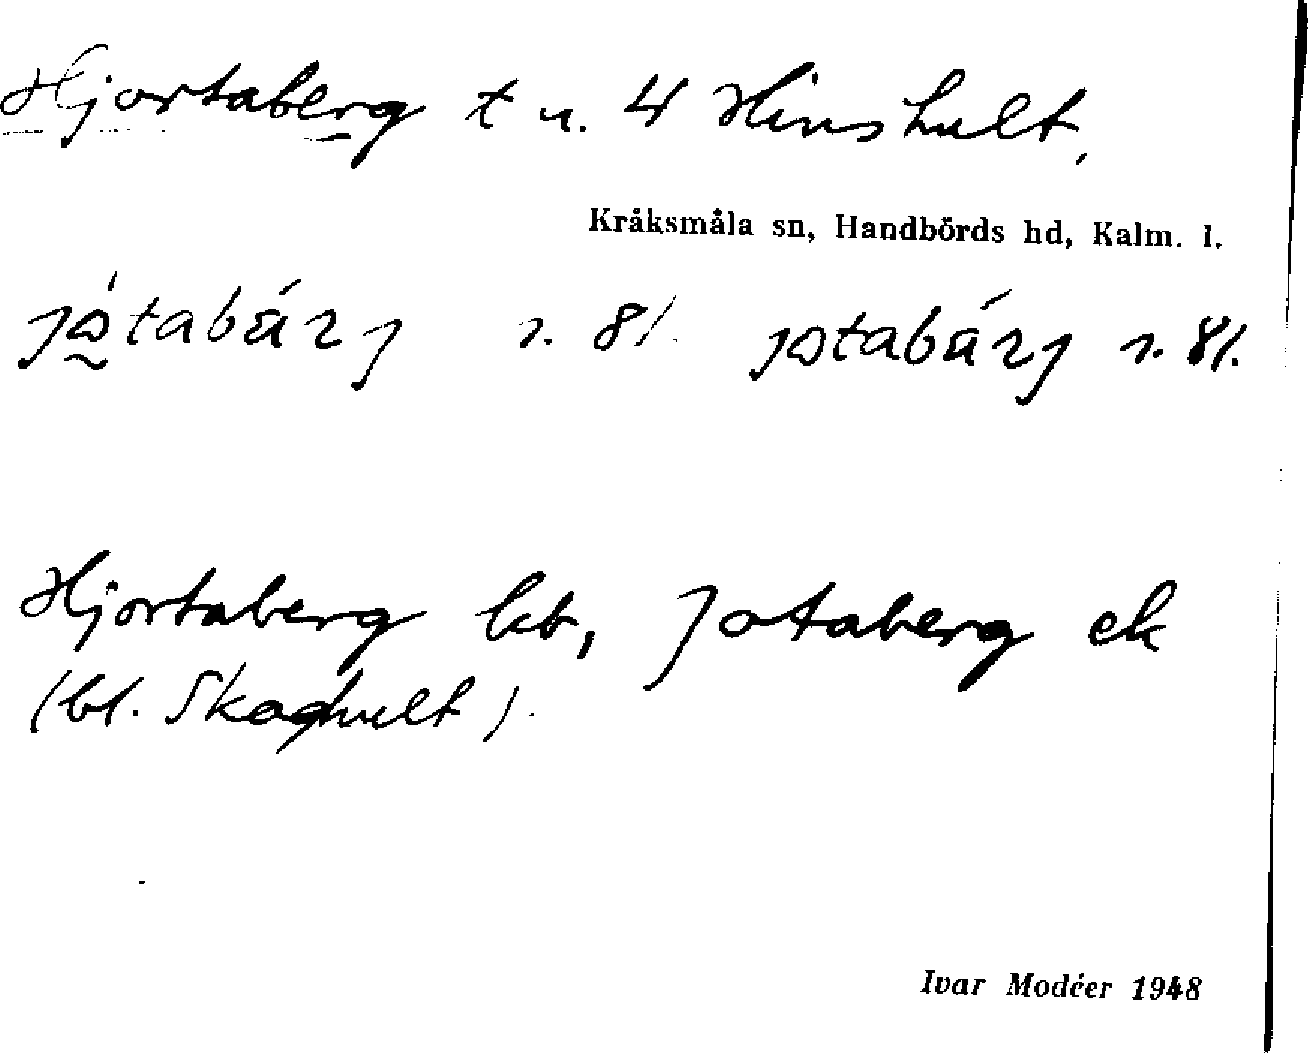 Hjortaberg t u. 4 Hinshult,
Kråksmåla sn, Handbörds hd, Kalm. l.
r. 81. r. 81.
Hjortaberg kb, Jotaberg ek
(bl. Skoghult).
Ivar Modéer 1948